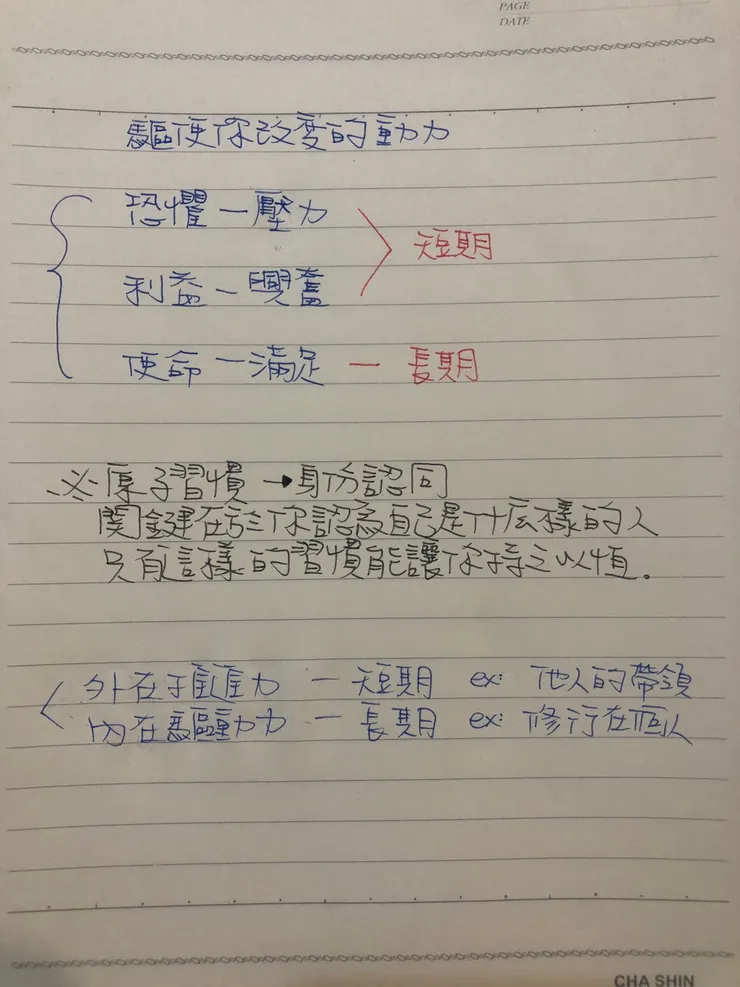 PAGE
DATE
驅使你改变的動力
恐懼－壓力
短期
利益－興奮
使命－滿足－長期
※原子習慣→身份認同
関鍵在於你認為自己是什么樣的人
只有這樣的習慣能讓你持之以恒.
外在推進力－短期 ex: 他人的帶領
內在驅動力－長期 ex: 修行在個人
CHA SHIN